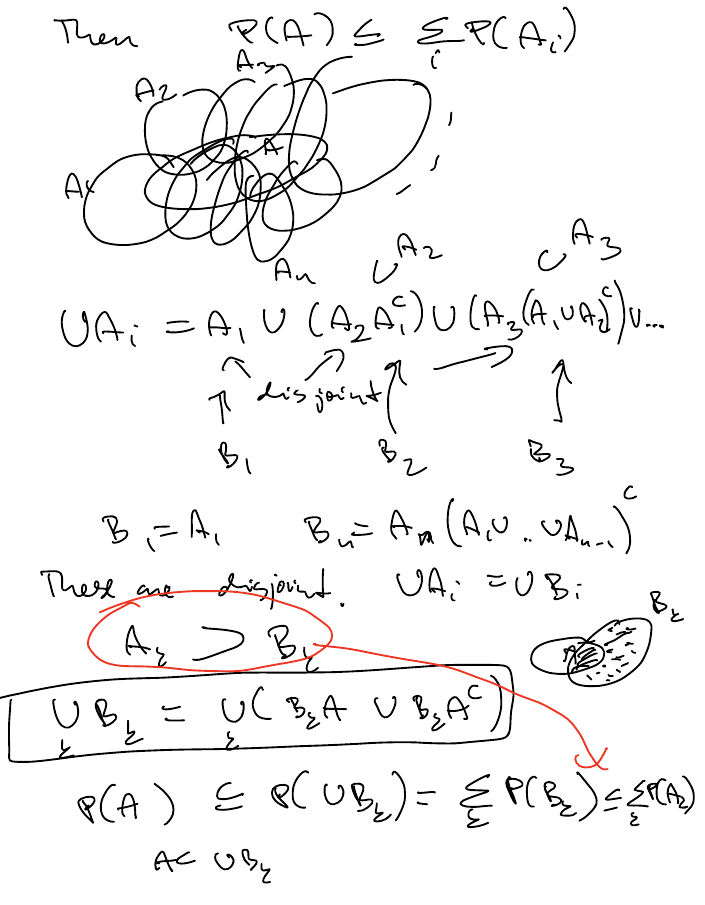 Then P(A) ≤ Σ_i P(A_i)
A_2 A_3
A
A_1
A_n ∪A_2 ∪A_3
∪A_i = A_1 ∪ (A_2 A_1^c) ∪ (A_3 (A_1 ∪ A_2)^c) ∪ ...
disjoint
B_1 B_2 B_3
B_1 = A_1 B_n = A_n (A_1 ∪ .. ∪ A_{n-1})^c
These are disjoint. ∪A_i = ∪B_i
A_k ⊃ B_k
A B_k
∪_k B_k = ∪_k ( B_k A ∪ B_k A^c )
P(A) ≤ P(∪B_k) = Σ_k P(B_k) ≤ Σ_k P(A_k)
A ⊂ ∪B_k